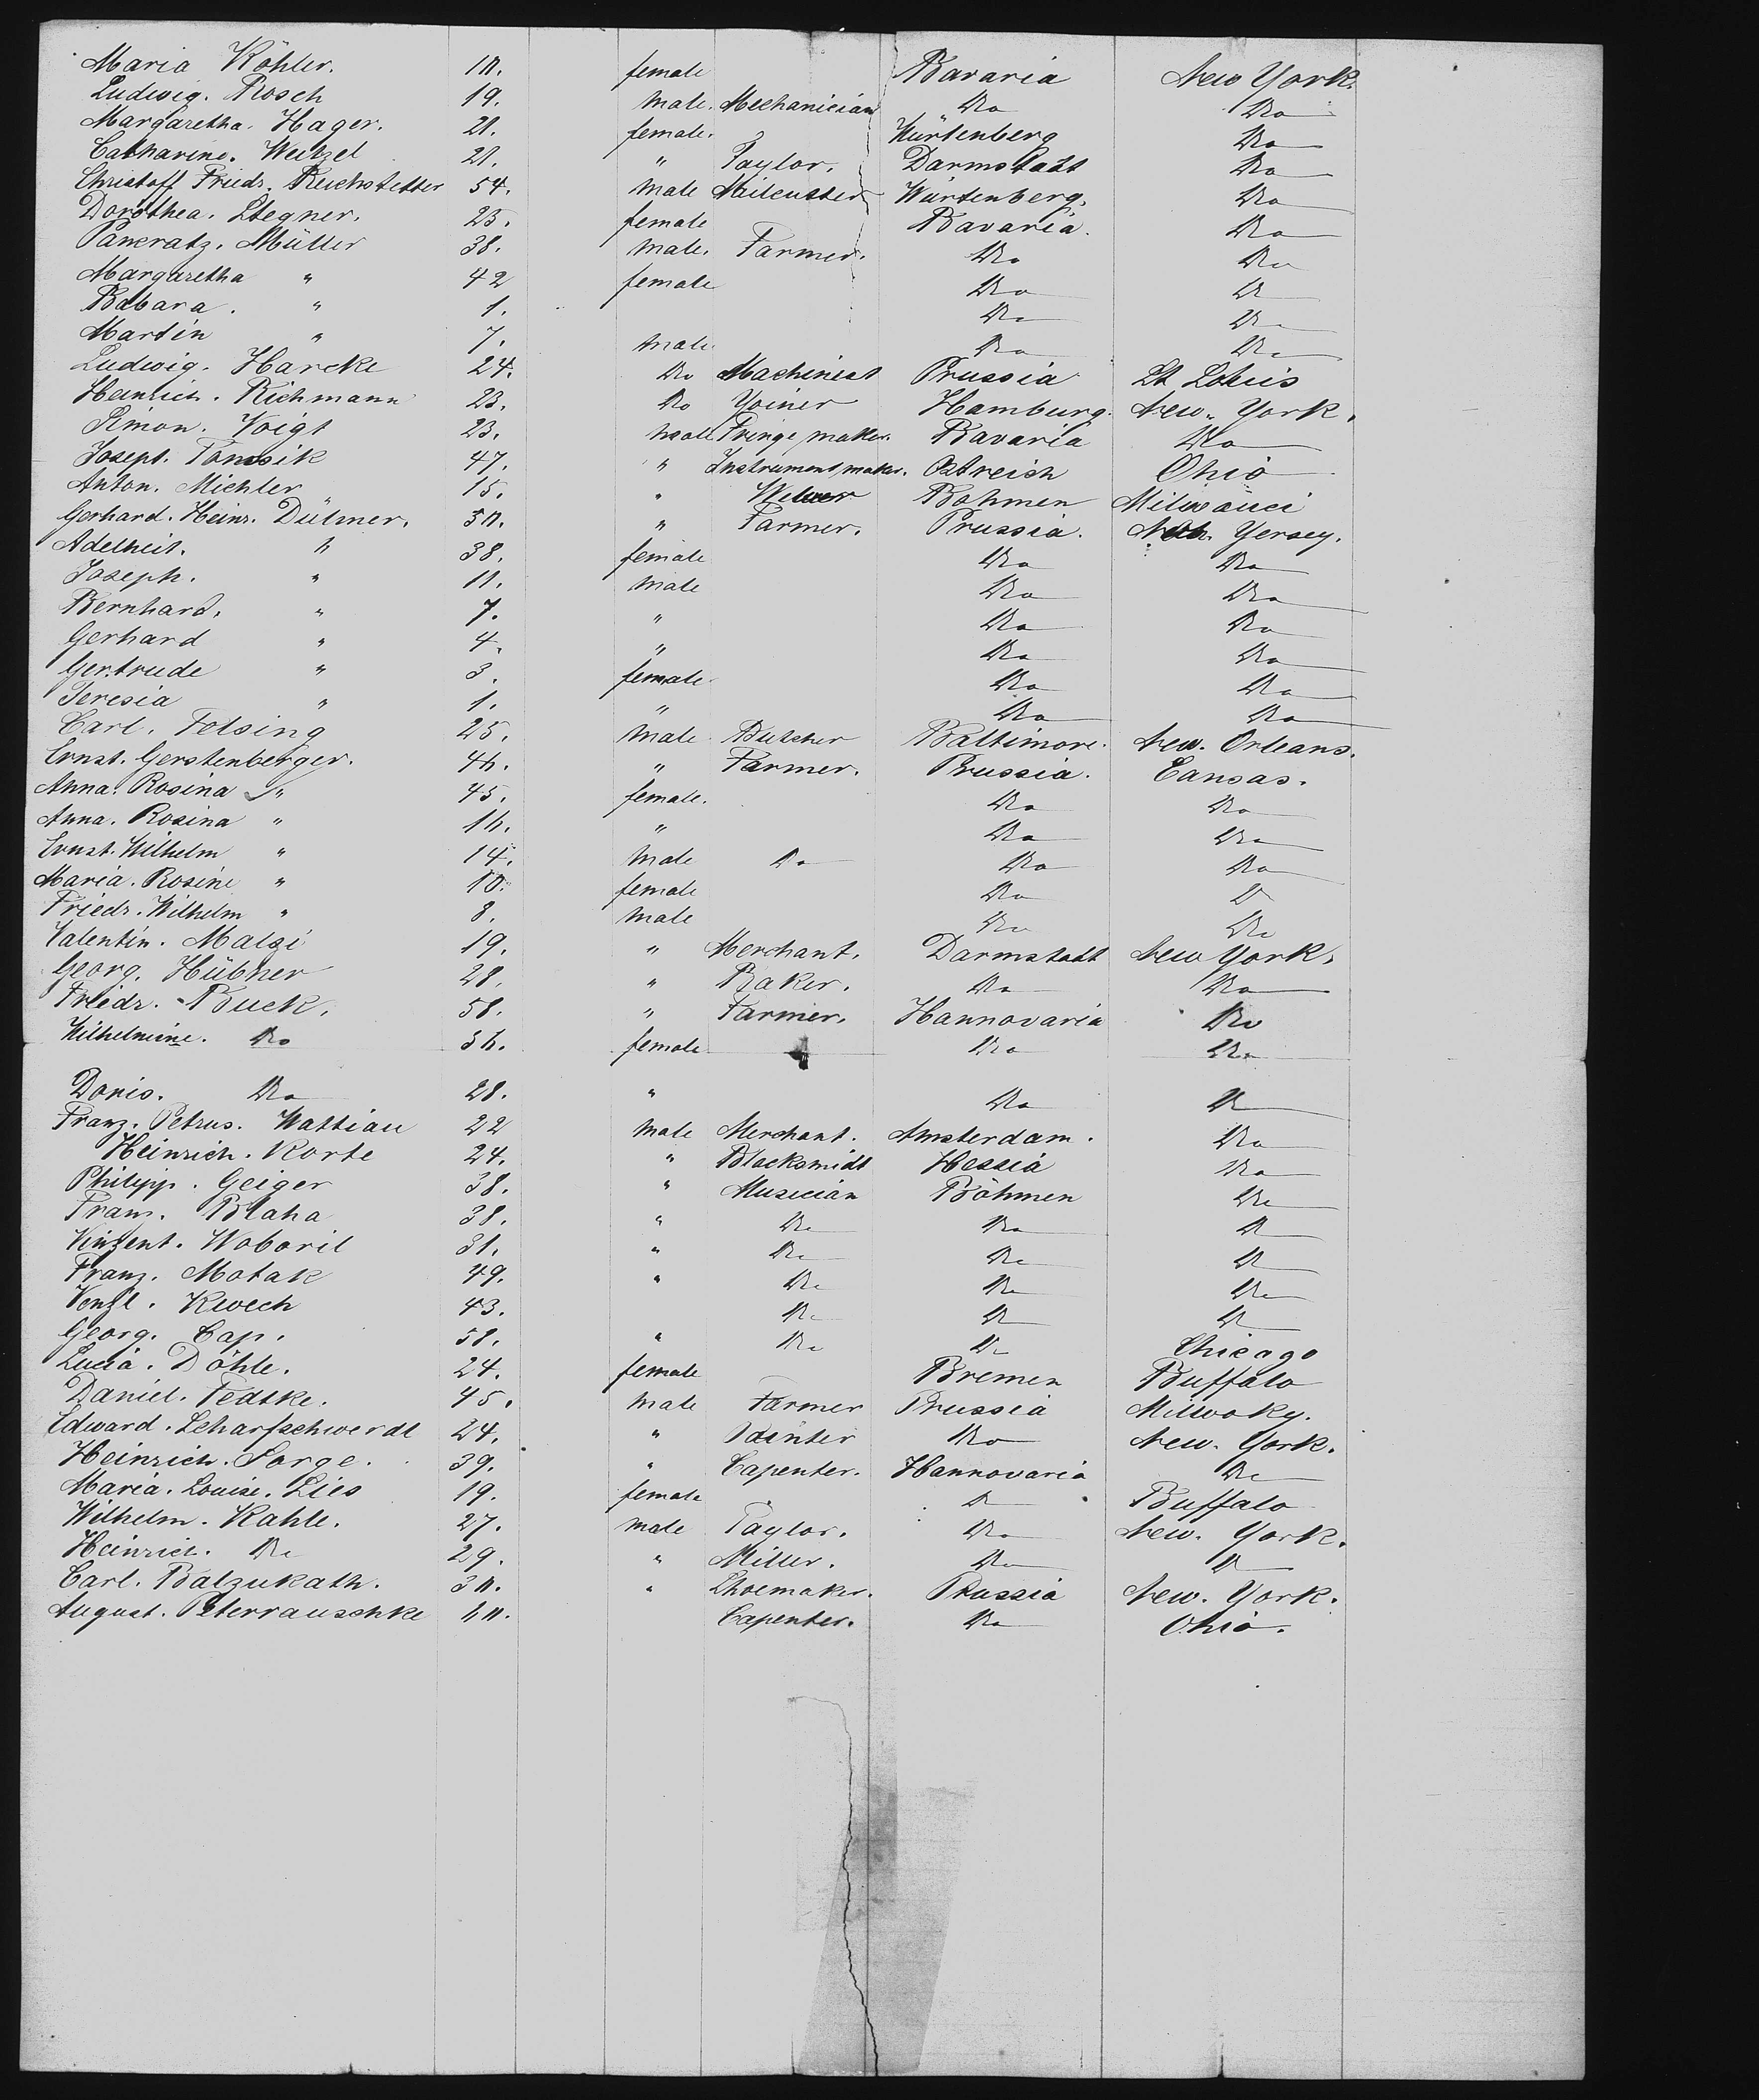 Maria Köhler. 18. female Bavaria New York.
Ludwig. Rosch 19. male. Mechanician Do Do
Margaretha. Hager. 21. female. Würtenberg Do
Catharine. Weitzel 21. " Taylor. Darmstadt Do
Christoff Friedr. Reichstetter 54. male Würtenberg. Do
Dorothea. Stegner. 23. female Bavaria. Do
Pancratz. Müller 38. male. Farmer. Do Do
Margaretha " 42 female Do Do
Babara. " 1. Do Do
Martin " 7. male Do Do
Ludwig. Harcke 24. Do Machinist Prussia St Louis
Heinrich. Richmann 23. Do Yoiner Hamburg. New. York.
Simon. Voigt 23. male Fringe maker. Bavaria Do
Joseph. 47. " Instrument maker. Östreich Ohio
Anton. Michler 15. " Böhmen Milwauci
Gerhard. Heinr. Dülmer. " Farmer. Prussia. Yersey.
Adelheit. " 38. female Do Do
Joseph. " 11. male Do Do
Bernhard. " 7. " Do Do
Gerhard " 4. " Do Do
Gertrude " 3. female Do Do
Teresia " 1. " Do Do
Carl. Felsing 25. male Butcher Baltimore. New. Orleans.
Ernst. Gerstenberger. 46. " Farmer. Prussia. Cansas.
Anna. Rosina " 45. female. Do Do
Anna. Rosina " 16. " Do Do
Ernst. Wilhelm " 14. male Do Do Do
Maria. Rosine " 10. female Do Do
Friedr. Wilhelm " 8. male Do Do
Valentin. Malzi 19. " Merchant. Darmstadt New York.
Georg. Hübner 28. " Baker. Do Do
Friedr. Buck. 58. " Farmer. Hannovaria Do
Wilhelmine. Do 56. female Do Do
Doris. Do 28. " Do Do
Franz. Petrus. Wattiau 22 male Merchant. Amsterdam. Do
Heinrich. Korte 24. " Blacksmidt Hessia Do
Philipp. Geiger 38. " Musician Böhmen Do
Franz. Blaha 38. " Do Do Do
Vinzent. Woboril 31. " Do Do Do
Franz. Motak 49. " Do Do Do
Venzl. Kwech 43. Do Do Do
Georg. Cap. 58. " Do Do Chicago
Lucia. Döhle. 24. female Bremen Buffalo
Daniel. Fedtke. 45. male Farmer Prussia Milwoky.
Edward. Scharfschwerdt 24. " Painter Do New. York.
Heinrich. Sorge. 39. " Capenter. Hannovaria Do
Maria. Louise. Lies 19. female Do Buffalo
Wilhelm. Kahle. 27. male Taylor. Do New. York.
Heinrich. Do 29. " Miller. Do Do
Carl. Balzukath. " Shoemaker. Prussia New. York.
August. Peterrauschke Capenter. Do Ohio.